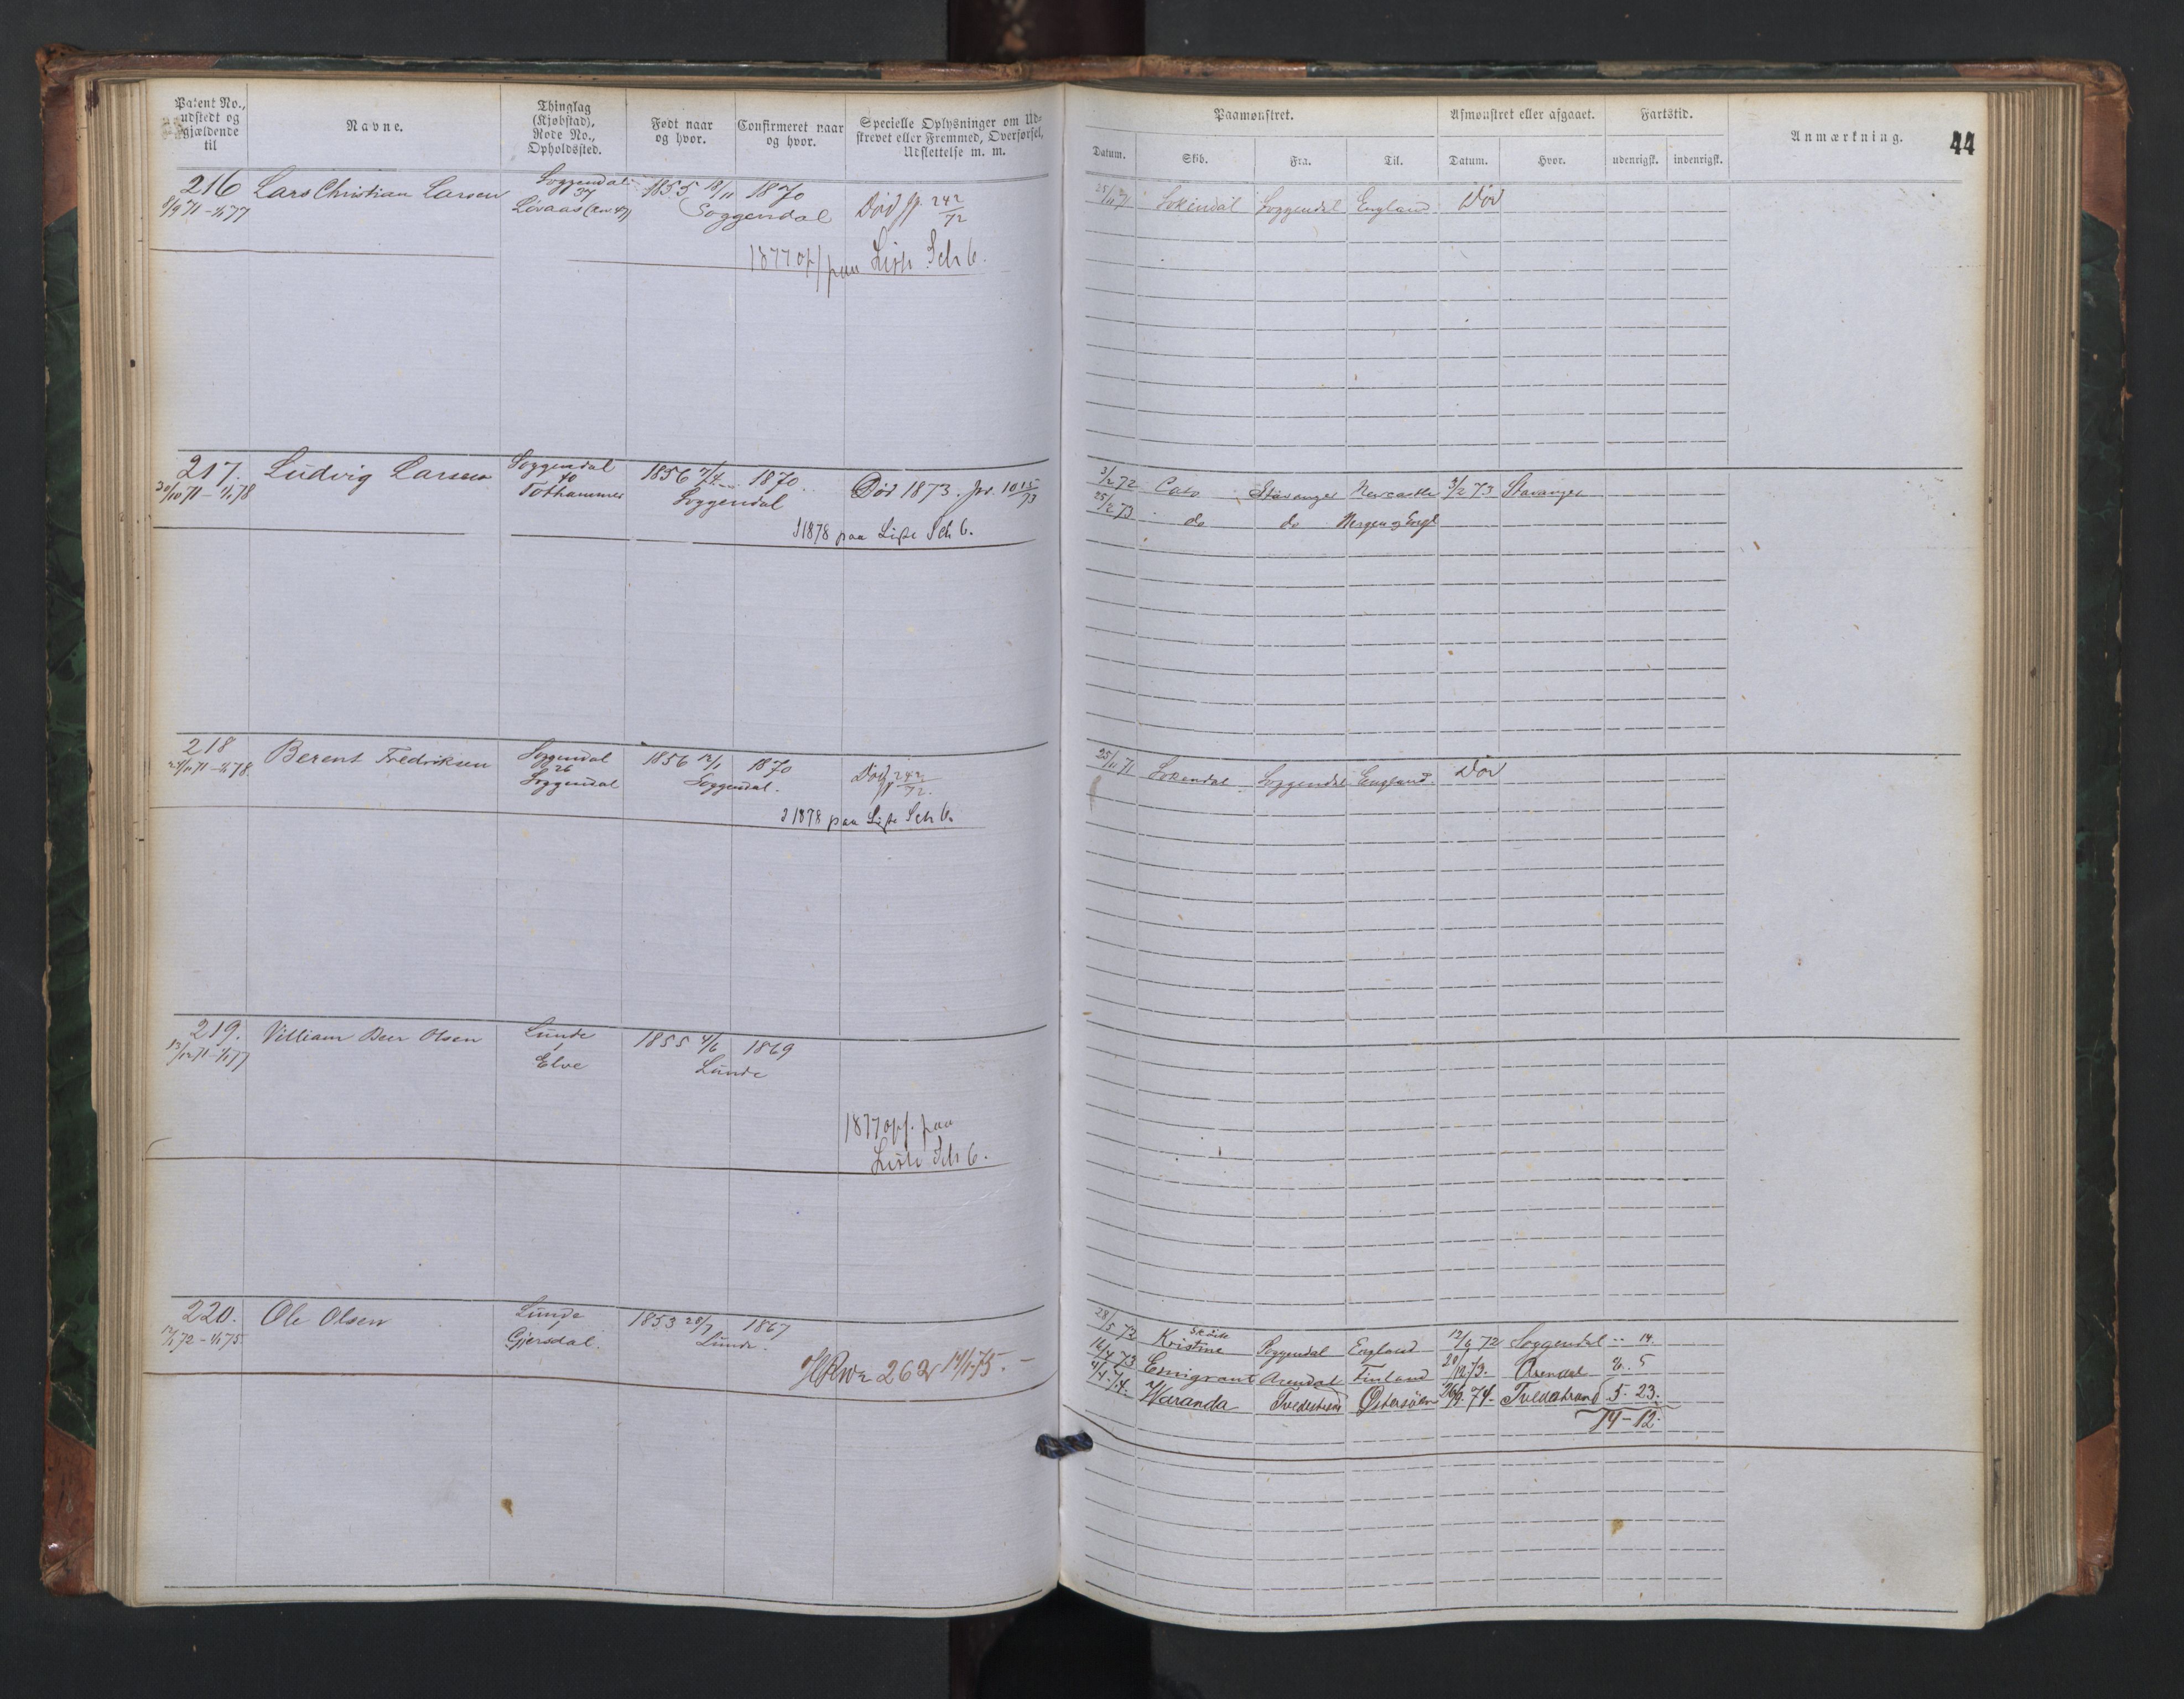 Patent No.,
udstedt og
gjældende
til
Navne.
Thinglag
(Kjøbstad),
Rode No.,
Opholdssted.
Født naar
og hvor.
Confirmeret naar
og hvor.
Specielle Oplysninger om Ud-
skrevet eller Fremmed, Overførsel,
Udslettelse m. m.
Paamønstret.
Afmønstret eller afgaaet.
Fartstid.
Anmærkning.
44
Datum.
Skib.
Fra.
Til.
Datum.
Hvor.
udenrigsk.
indenrigsk.
216 Lars Christian Larsen Soggendal 1855 18/11 1870
8/9 71 - 1/1 77 37
Løvaas Soggendal Død jr. 242/72
25/11 71 Sokendal Soggendal England Død
1877 opf paa Liste Sch 6.
217. Ludvig Larsen Soggendal 1856 7/4 1870
30/10 71 - 1/1 78 40 Død 1873. jr. 1015/73
Tothammer Soggendal
3/2 72 Cato Stavanger Newcastle 3/2 73 Stavanger
25/2 73 do do
1878 paa Liste Sch 6.
218 Berent Fredriksen Soggendal 1856 12/1 1870
24/11 71 - 1/1 78 26 Død jr 242/72.
Soggendal Soggendal.
25/11 71 Sokendal Soggendal England Død
1878 paa Liste Sch 6.
219. Villiam Beer Olsen Lunde 1855 4/6 1869
13/12 71 - 1/1 77 1
Elve Lunde
1877 opf. paa
Liste Sch 6.
220. Ole Olsen Lunde 1853 20/7 1867
12/1 72 - 1/1 75. 1
Gjersdal. Lunde.
262 14/1 75. -
28/5 72 Kristine Soggendal England 12/6 72 Soggendal " 14.
16/4 73 Emigrant Arendal Finland 20/12 73. Arendal 8. 5
4/4 74. Waranda Tvedestrand Østersøen 26/9 74- Tvedestrand 5. 23.
14 - 12.